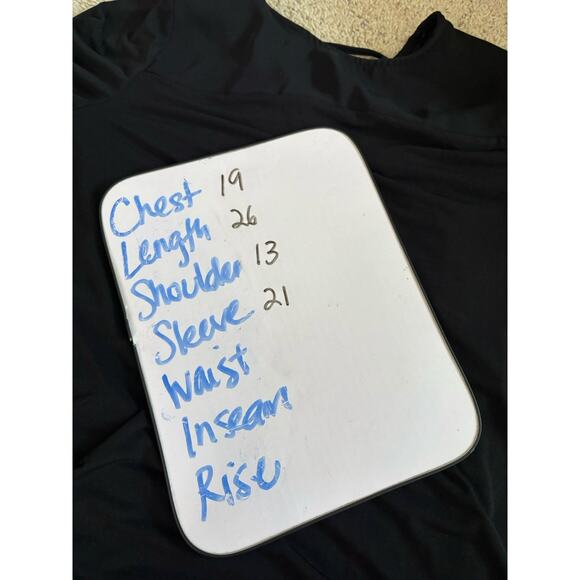 Chest 19
Length 26
Shoulder 13
Sleeve 21
Waist
Inseam
Rise